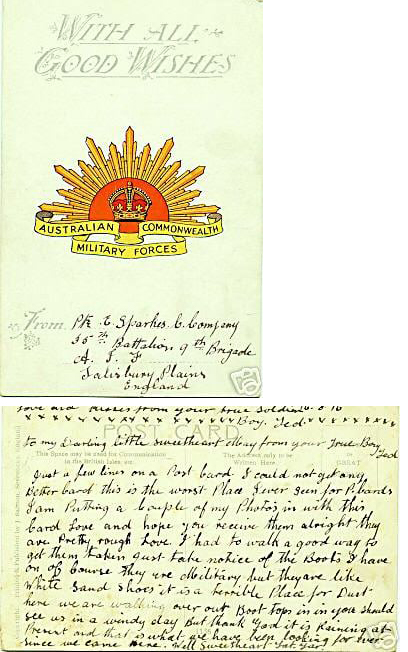 WITH ALL
GOOD WISHES
AUSTRALIAN COMMONWEALTH
MILITARY FORCES
From Pte E. Sparkes C. Company
35th Battalion 9th Brigade
A. I. F
Salisbury Plains
England
Love and Kisses from your True Soldier
Boy. Ted.
POST CARD
to my Darling little sweetheart May from your True Boy
Ted
This Space may be used for Communication
in the British Isles, etc.
Written Here
GREAT
Just a few lines on a Post Card. I could not get any
Better Card this is the worst Place I ever seen for P. Cards
I am Putting a couple of my Photos in with this
Card Love and hope you receive them alright they
are Pretty rough Love I had to walk a good way to
get them taken just take notice of the Boots I have
on of course they are Military but they are like
White Sand Shoes it is a terrible Place for Dust
here we are walking over our Boot tops in in you should
see us in a windy day But thank God it is Raining at
Present and that is what we have been looking for ever
since we came here. Well Sweetheart